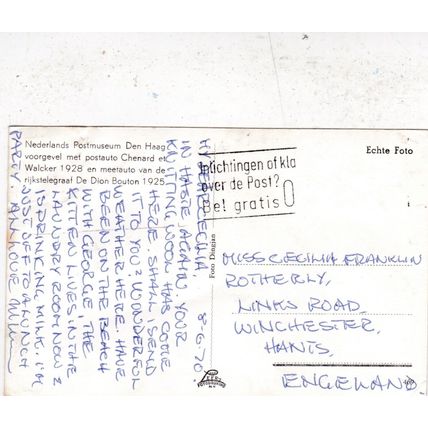 Nederlands Postmuseum Den Haag
voorgevel met postauto Chenard et
Walcker 1928 en meetauto van de
rijkstelegraaf De Dion Bouton 1925
Echte Foto
Inlichtingen of kla
over de Post?
Bel gratis 0
8-6-70.
MY DEAR CECILIA
IN HASTE AGAIN YOUR
KNITTING WOOL HAS COME
HERE. SHALL I SEND
IT TO YOU? WONDERFUL
WEATHER HERE. HAVE
BEEN ON THE BEACH
WITH GEORGE! THE
KITTEN LIVES IN THE
LAUNDRY ROOM NOW &
IS DRINKING MILK. I'M
JUST OFF TO A LUNCH
PARTY. ALL LOVE
Foto Dingjan
MISS CECILIA FRANKLIN
ROTHERLY,
LINKS ROAD.
WINCHESTER,
HANTS,
ENGELAND